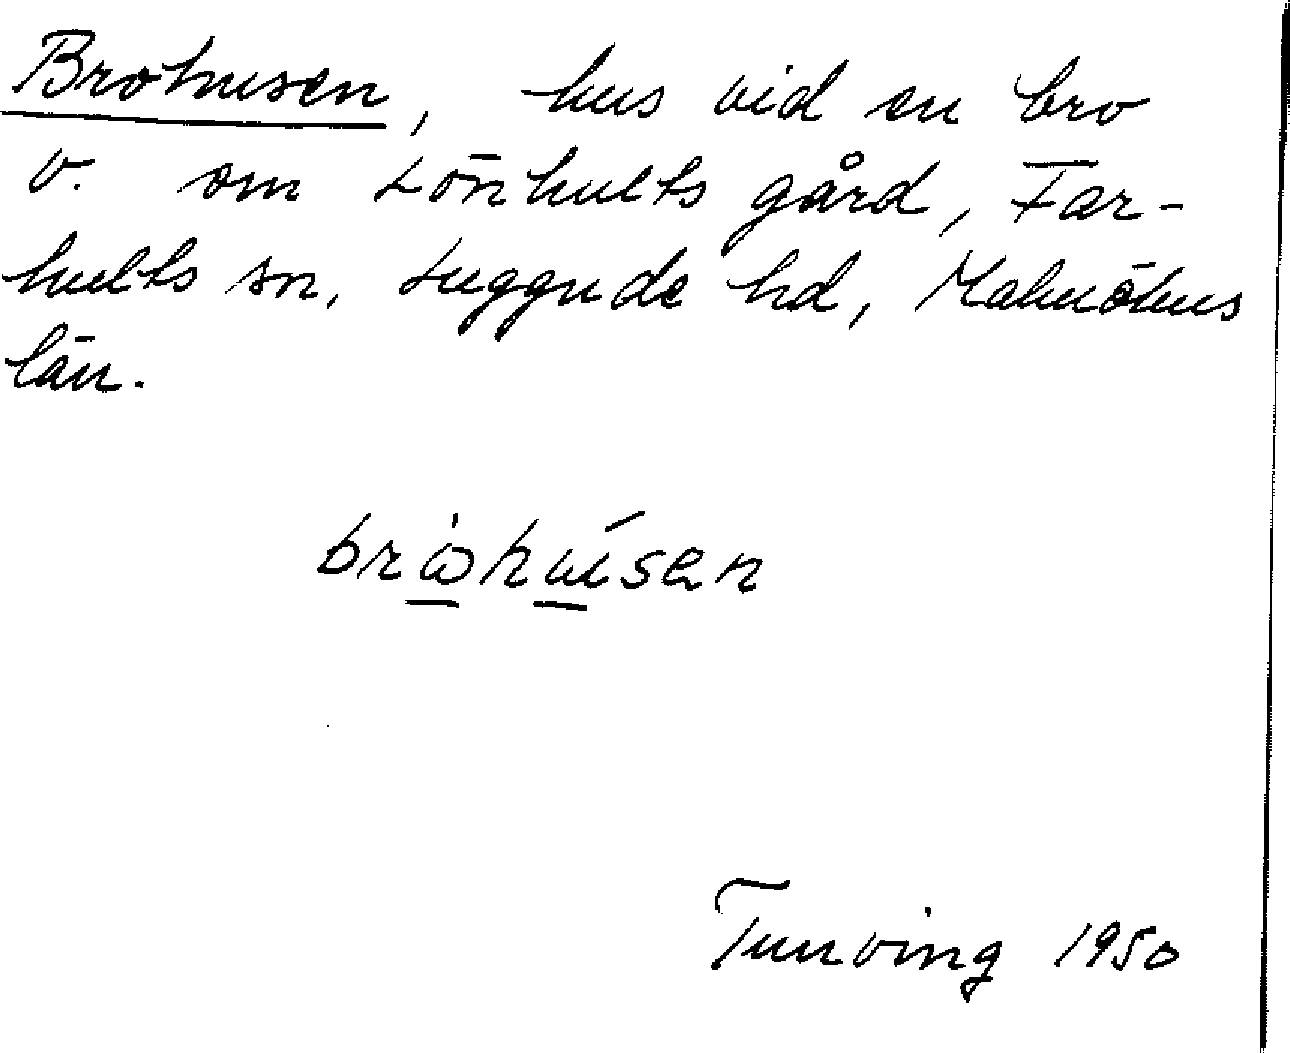 Brohusen, hus vid en bro
v. om Lönhults gård, Far-
hults sn, Luggude hd, Malmöhus
län.
Tunving 1950